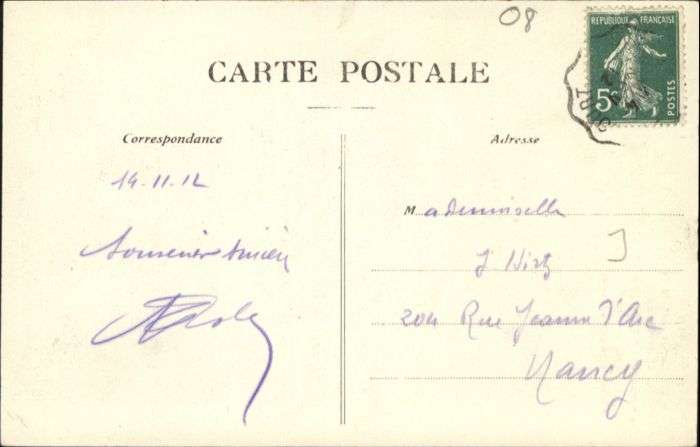 08
RÉPUBLIQUE FRANÇAISE
5c
POSTES
CARTE POSTALE
Correspondance
Adresse
14.11.12
Souvenir sincère
Mademoiselle
J
204 Rue Jeanne d'Arc
Nancy